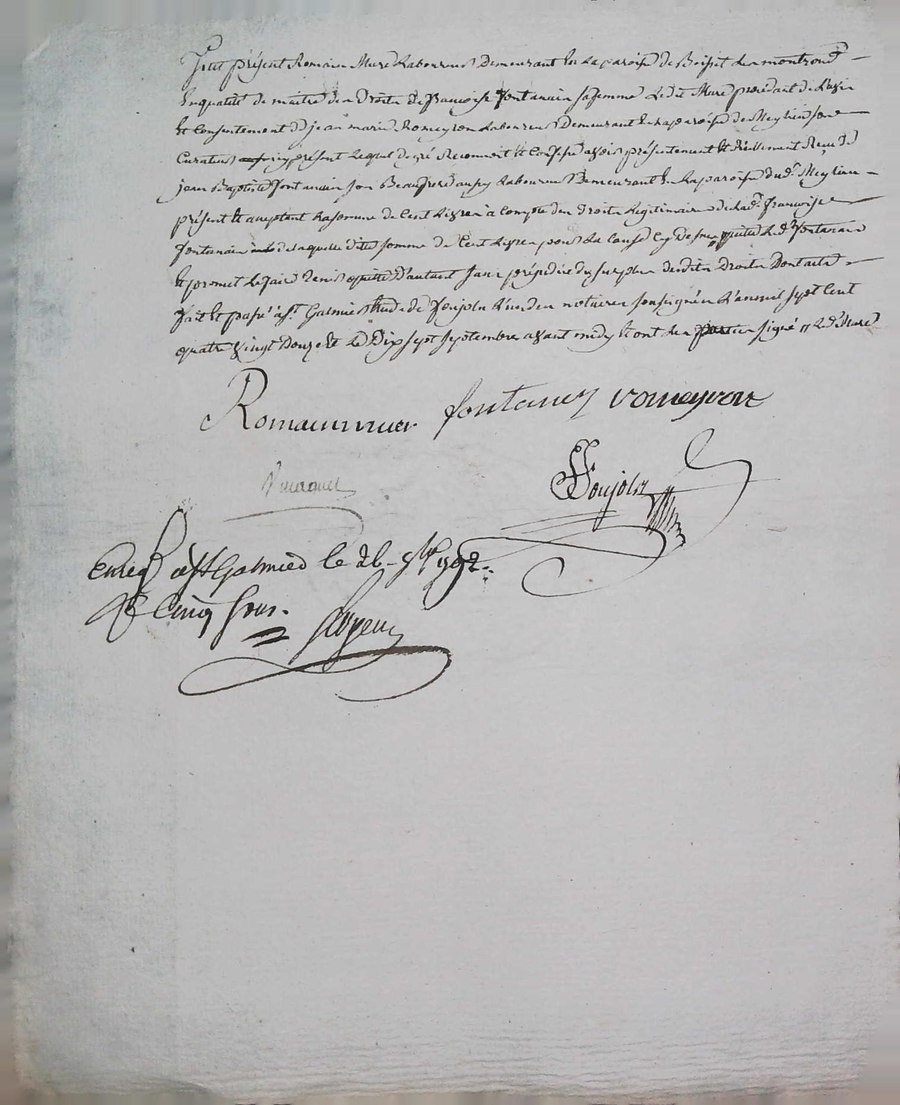 fut présent Romain Mure Laboureur Demeurant en La paroisse de Boisset Les montrond
En qualité de maitre des Droits de francoise fontanain sa femme Ledit Mure procédant de L'avis
Et Consentement de jean marie Romeyron Laboureur Demeurant en La paroisse de Meylieu son
Curateur présent Lequel de gré Reconnoit et Confesse avoir présentement et Réellement Reçu de
jean Baptiste fontanain son Beaufrere aussy Laboureur Demeurant en La paroisse dud. Meylieu
présent et acceptant La somme de Cent Livres à Compte des Droits Légitimaires de Lad. francoise
fontanain de Laquelle dite somme de Cent Livres pour La Cause Cy Dessus quitte Led. fontanain
Et promet Le faire tenir quitte D'autant sans préjudice du surplus desdits Droits Dont acte
fait Et passé à St. Galmier Etude de Poujols L'un des notaires soussignés L'an mil sept cent
quatre vingt Douze Et Le Dix sept septembre avant midy Et ont Les parties signé
Romain mure fontaney romeyron
Poujols
Enreg. à St Galmier le 26 7bre 1792
R Cinq sous.